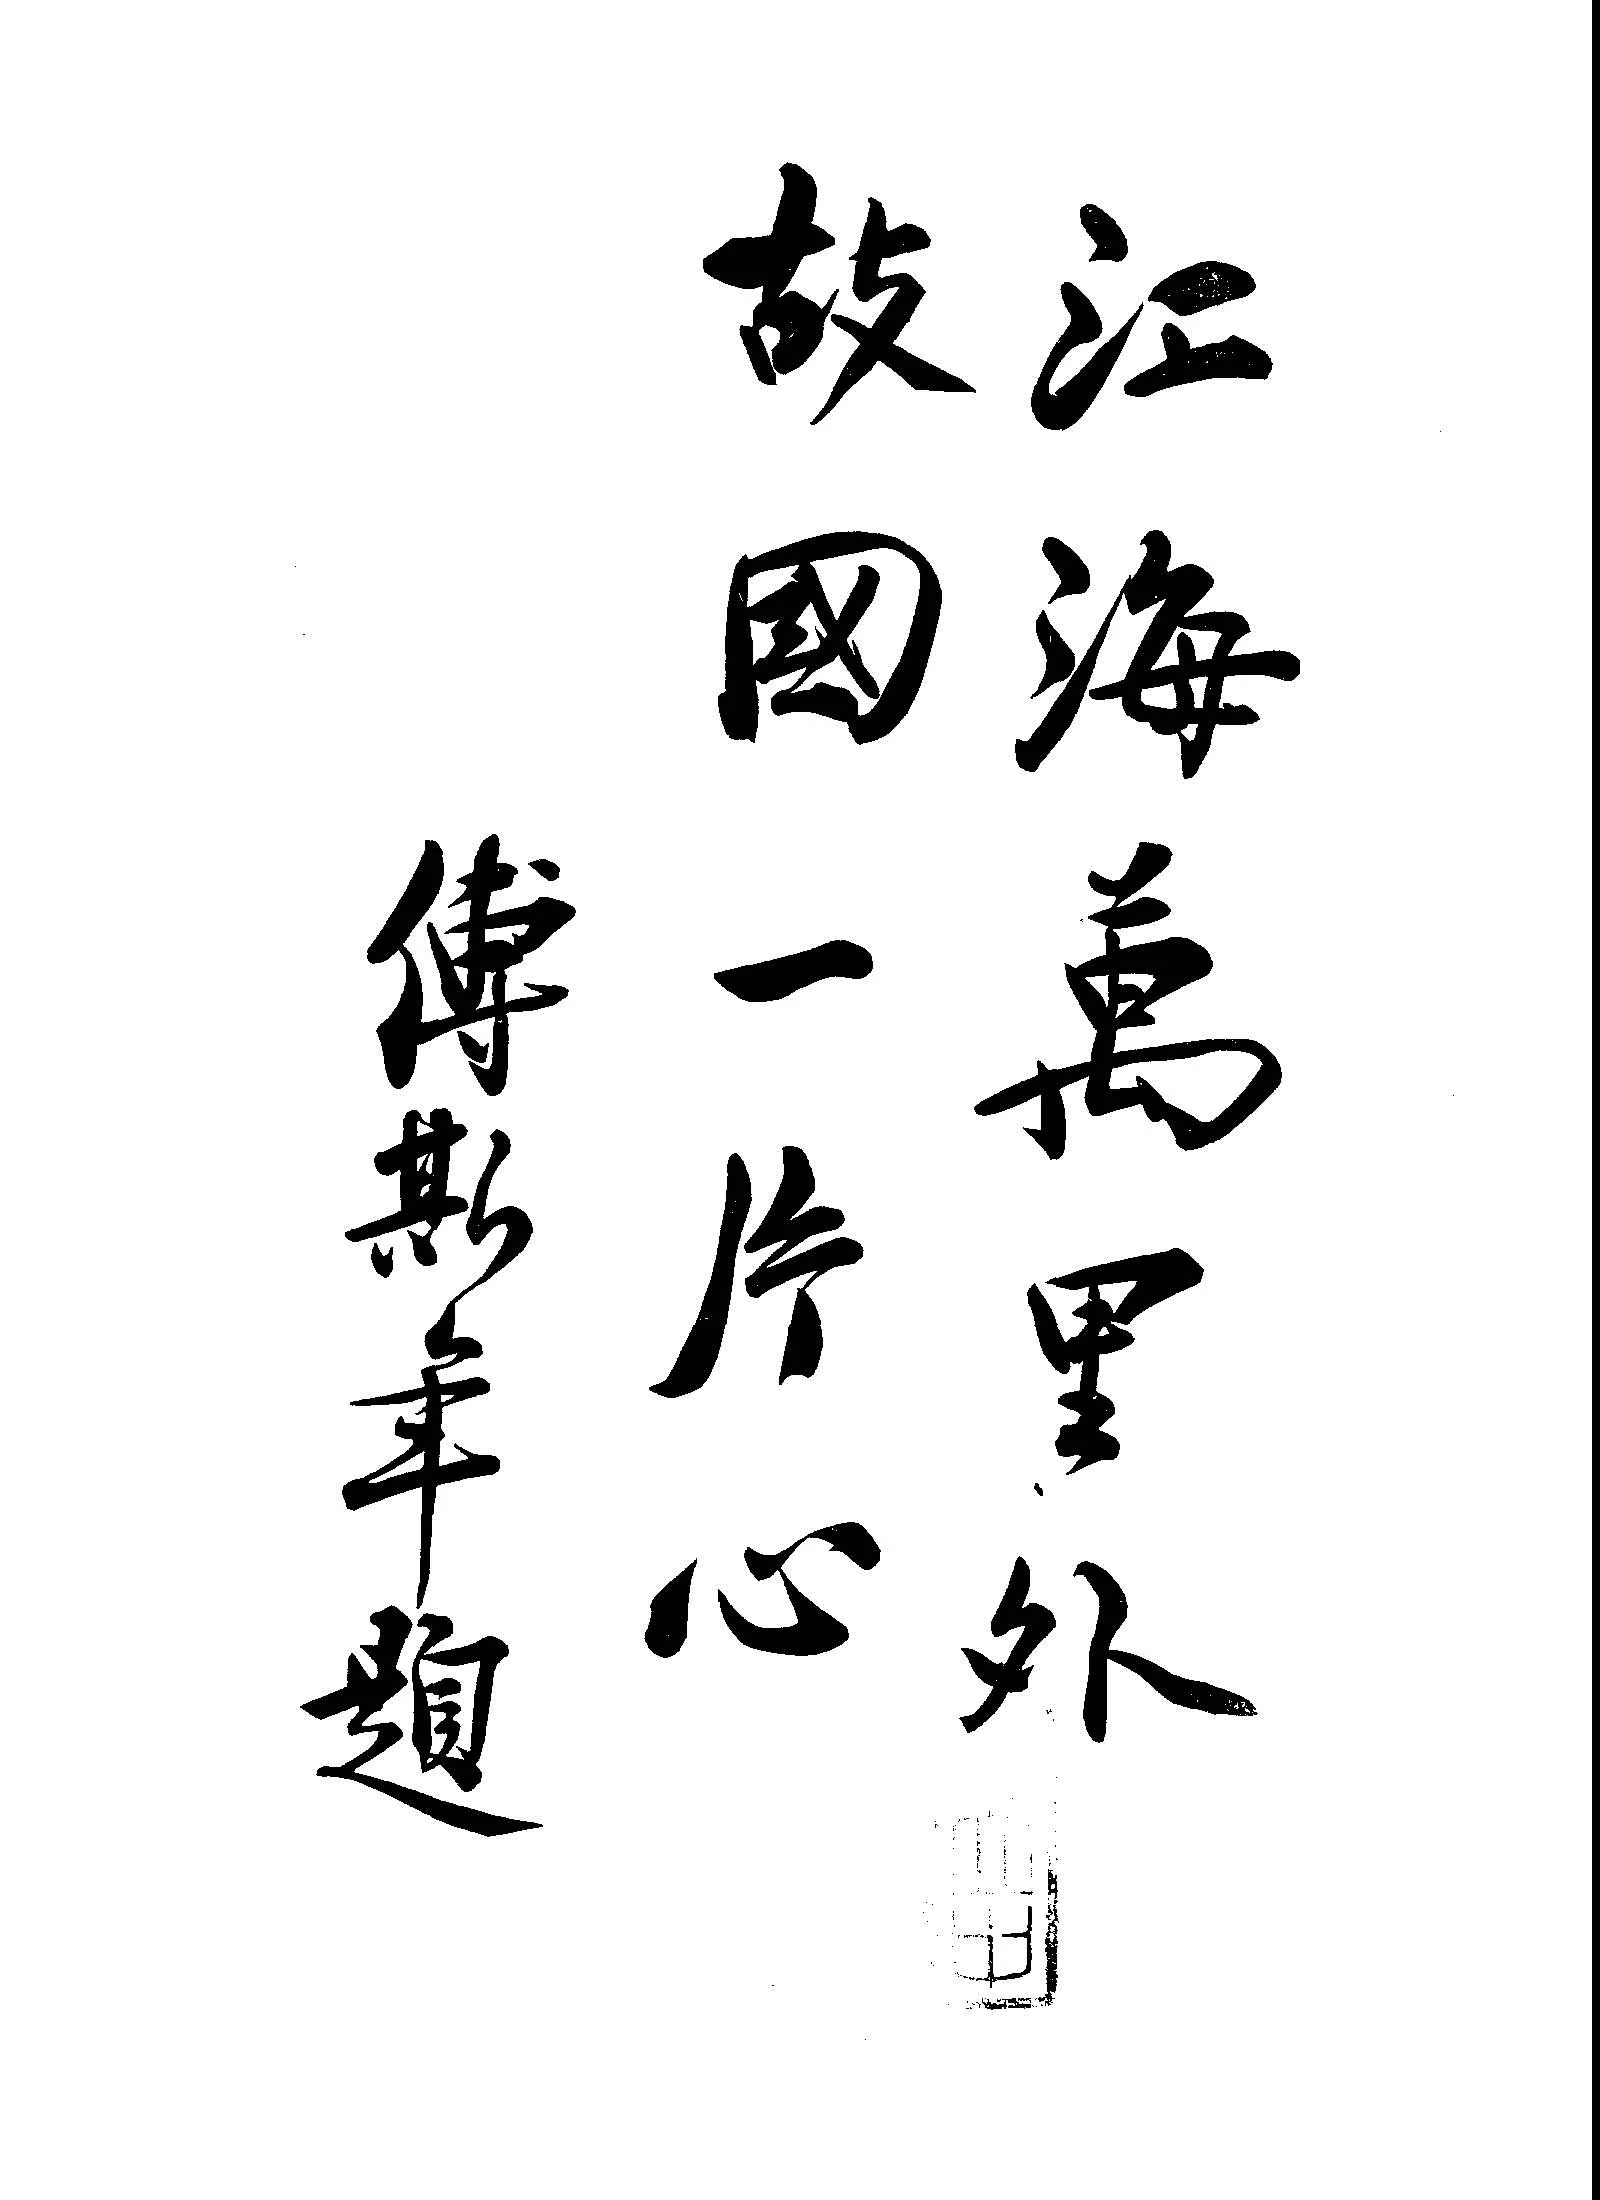 江海萬里外
故國一片心
傅斯年題